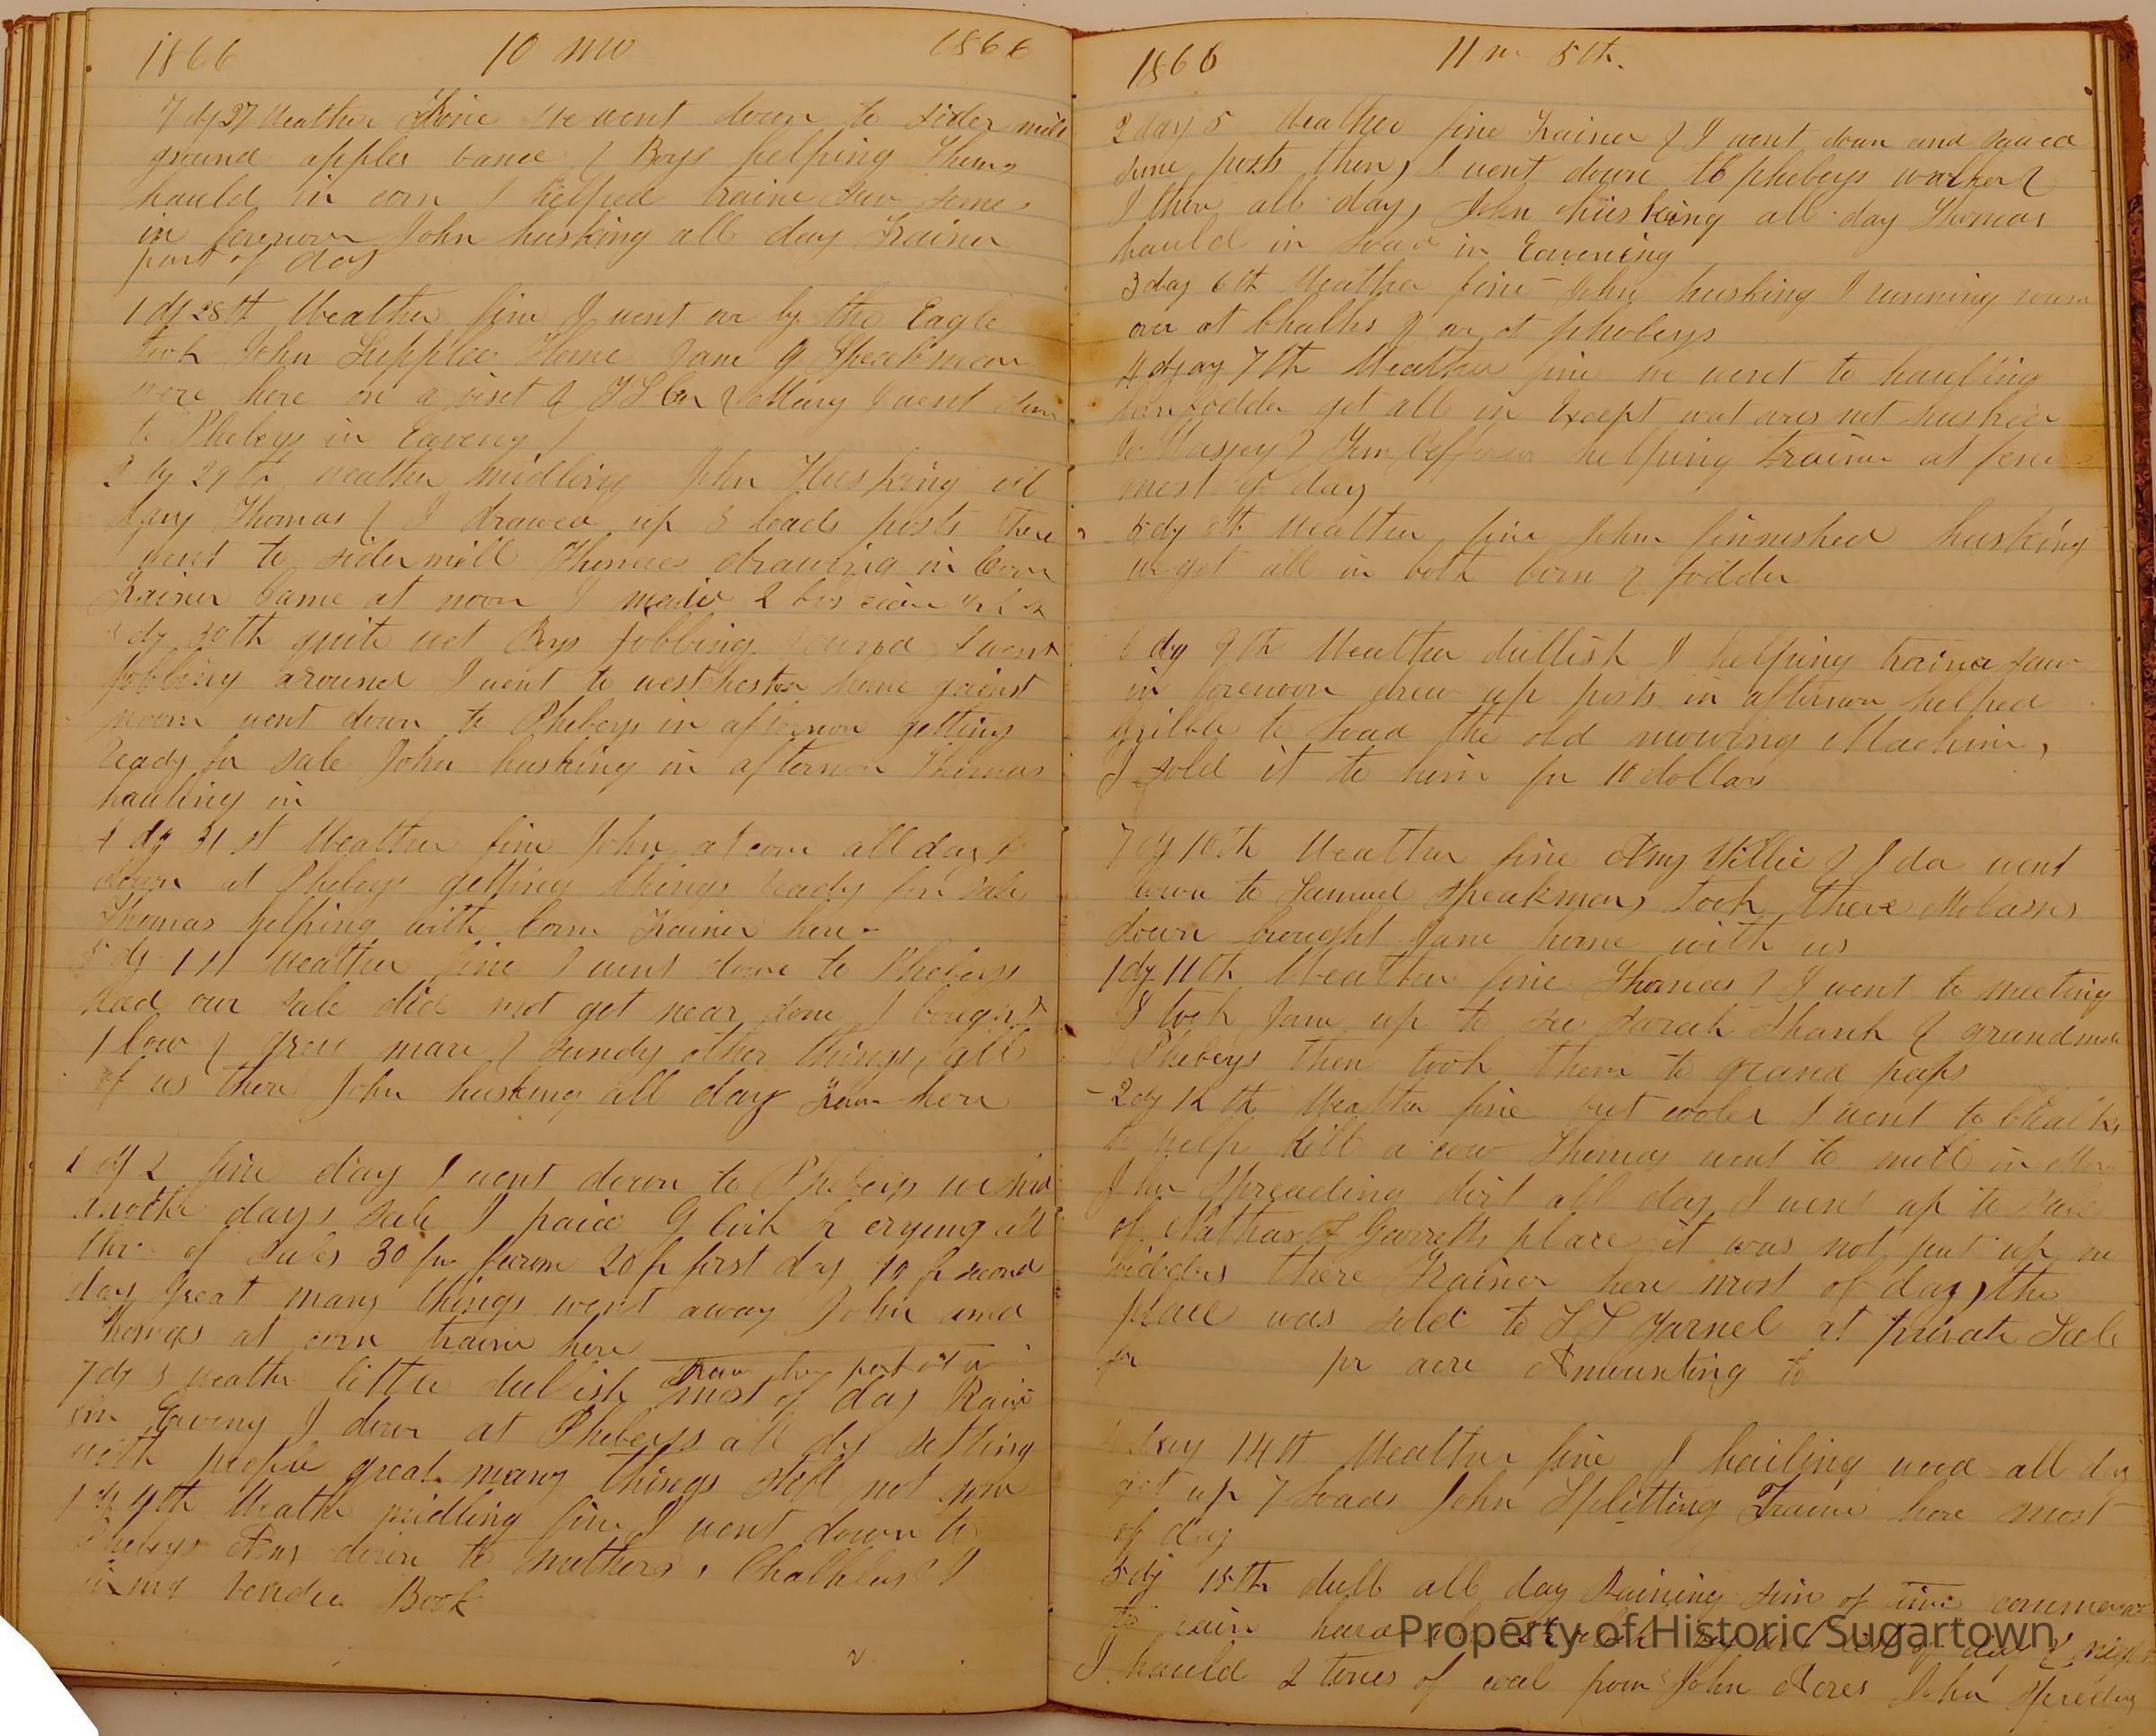 1866 10 mo 1866
7 dy 27 Weather Fine we went down to sider mill
ground apples & Boys helping them
hauld in corn I helped train saw some
in forenoon John husking all day Trainer
part of day
1 dy 28th Weather fine I went over by the Eagle
took John Supplee Home Jane G Speakman
were here on a visit & Mary & went down
to Phebeys in Eaveng
2 dy 29th weather midling John Husking all
day Thomas & I drawed up 3 loads posts then
went to sider mill Thomas drawing in Corn
Trainer Came at noon I made 2
dy 30th quite wet Boys jobbing round I went
jobbling around I went to westchester home gainst
noon went down to Phebeys in afternoon getting
ready for sale John husking in afternoon Thomas
hauling in
4 dy 31st Weather fine John at corn all day I
down at Phebeys getting things ready for sale
Thomas helping with Corn Trainer here
5 dy 1st weather fine I went down to Phebeys
had our sale did not get near done I bought
1 Cow & grey mare & sundy other things, all
of us there John husking all day here
dy 2 fine day I went down to Phebeys we had
another days sale I paid G for crying all
of sales 30 20 for first day 10 for second
day great many things went away John and
Thomas at corn train here
7 dy 3 weather little dullish most of day Rain
in Eaveng I down at Phebeys all dy setling
with people great many things still not gone
1 dy 4th Weather midling fine I went down to
Phebeys Amy down to mothers, Chalkleys I
in my vendue Book
1866 11 m 5th.
2 day 5 Weather fine Trainer & I went down and sawed
some posts then, I went down to phebeys walker &
I there all day, John husking all day Thomas
hauld in load in Eavening
3 day 6th Weather fine John husking I running round
over at Chalks & over at phebeys
4 dy 7th Weather fine we went to hauling
Cornfodder got all in Except wat was not husked
Massey & helping Trainer at fence
most of day
5 dy 8th Weather fine John finnished husking
we got all in both Corn & fodder
6 dy 9th Weather dullish I helping trainer saw
in forenoon drew up posts in afternoon helped
to load the old mowing Machine,
I sold it to him for 10 dollar
7 dy 10th Weather fine Amy Willie & Ida went
down to Samuel Speakmans took there Molasses
down brought Jane home with us
1 dy 11th Weather fine Thomas & I went to meeting
I took Jane up to see Sarah Shank &
Phebeys then took them to grand paps
2 dy 12th Weather fine but cooler I went to Chalks
to help kill a cow Thomas went to mill in
John Spreading dirt all day I went up to sale
of Nathan Garretts place it was not put up no
bidders there Trainer here most of day, the
place was sold to Yarnel at private Sale
for pr acre Amounting to
day 14th Weather fine I hailing wood all dy
got up 7 loads John Splitting Trainer here most
of day
5 dy 15th dull all day Raining some of time commenced
to rain hard
I hauld 2 tones of coal from John Acres John Spreding
Property of Historic Sugartown